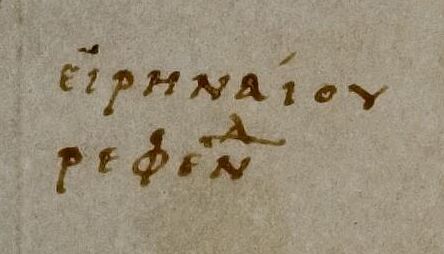 εἰρηναίου
ρεφεν^δ